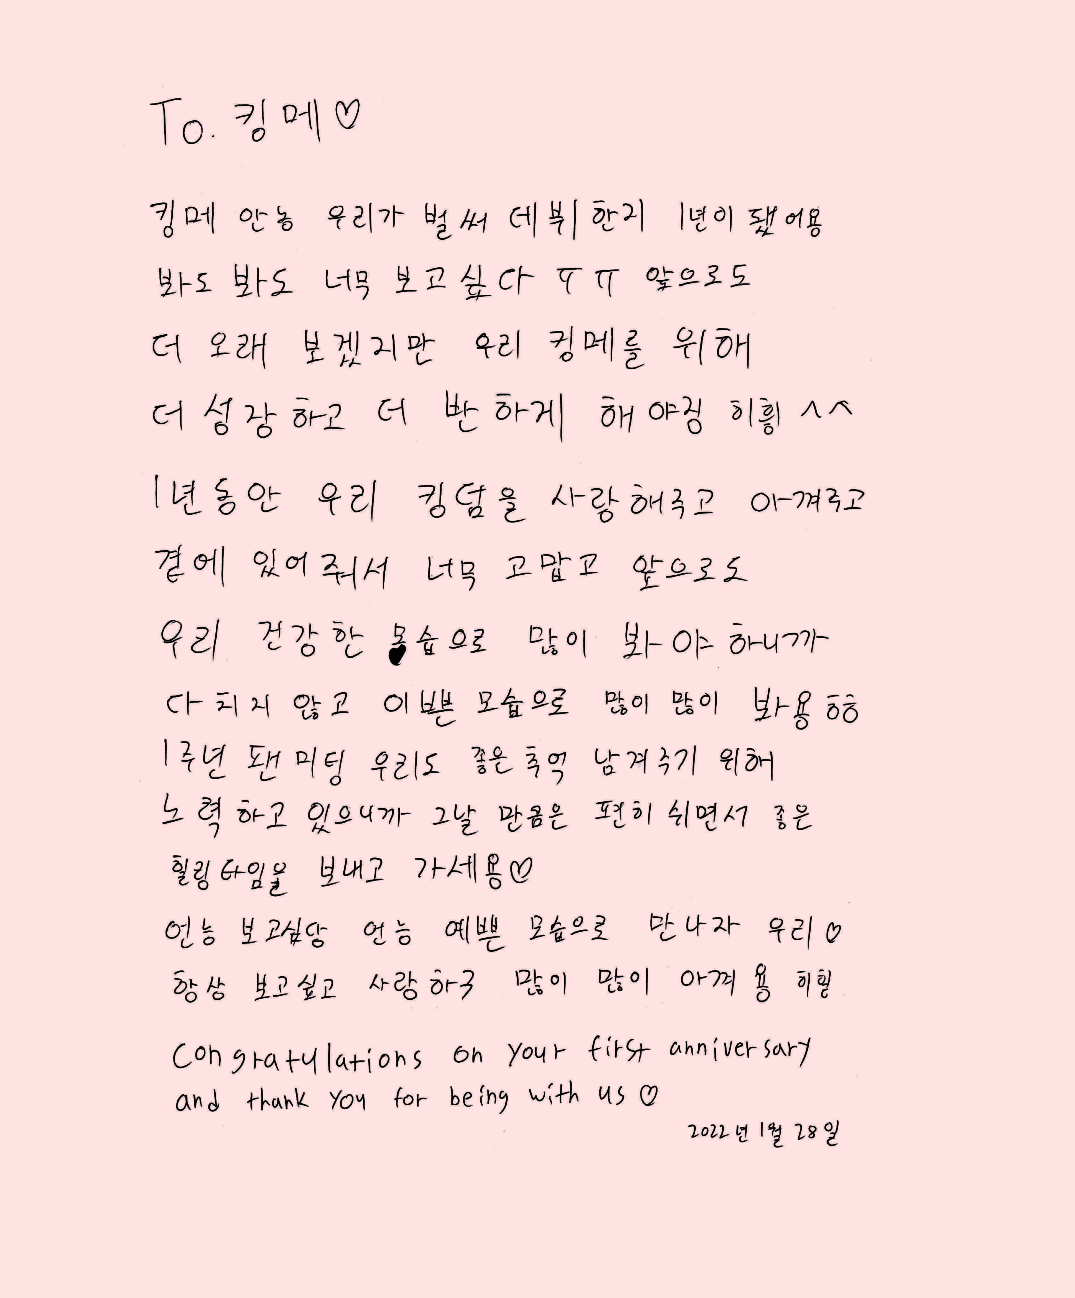 To. 킹메♡
킹메 안농 우리가 벌써 데뷔한지 1년이 됐어용
봐도 봐도 너무 보고싶다 ㅠㅠ 앞으로도
더 오래 보겠지만 우리 킹메를 위해
더 성장하고 더 반하게 해야징 히힣 ^^
1년동안 우리 킹덤을 사랑해주고 아껴주고
곁에 있어줘서 너무 고맙고 앞으로도
우리 건강한 모습으로 많이 봐야하니까
다치지 않고 이쁜 모습으로 많이 많이 봐용ㅎㅎ
1주년 팬미팅 우리도 좋은추억 남겨주기 위해
노력하고 있으니까 그날 만큼은 편히 쉬면서 좋은
힐링타임을 보내고 가세용♡
언능 보고싶당 언능 예쁜 모습으로 만나자 우리♡
항상 보고싶고 사랑하구 많이 많이 아껴용 히힣
Congratulations on your first anniversary
and thank you for being with us♡
2022년 1월 28일